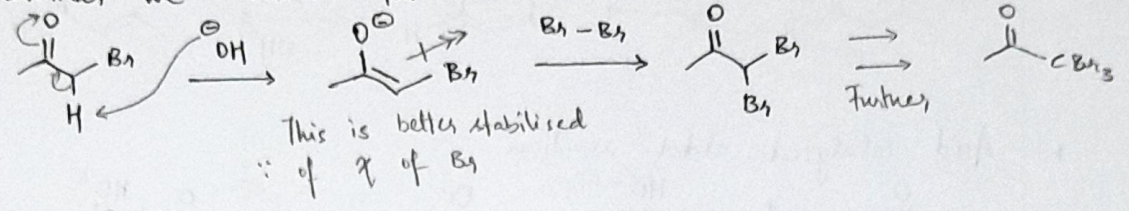 O
⊖
OH
Br
H
O
⊖
Br
Br – Br
O
Br
Br
Further
O
CBr3
This is better stabilised
∵ of χ of Br